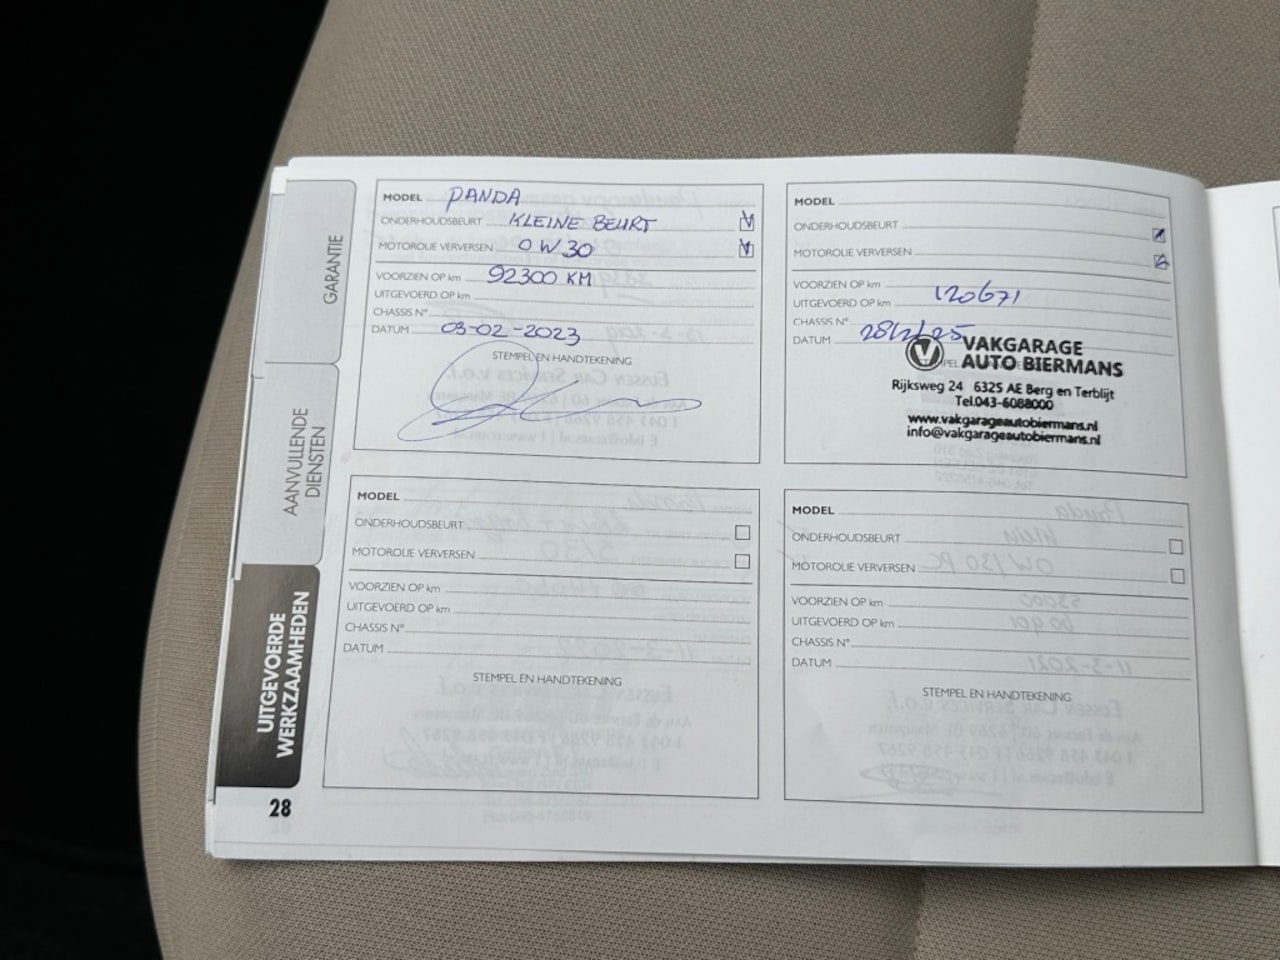 GARANTIE
AANVULLENDE
DIENSTEN
UITGEVOERDE
WERKZAAMHEDEN
28
MODEL PANDA
ONDERHOUDSBEURT KLEINE BEURT
MOTOROLIE VERVERSEN 0W30
VOORZIEN OP km 92300 KM
UITGEVOERD OP km
CHASSIS N°
DATUM 03-02-2023
STEMPEL EN HANDTEKENING
MODEL
ONDERHOUDSBEURT
MOTOROLIE VERVERSEN
VOORZIEN OP km
UITGEVOERD OP km 120671
CHASSIS N°
DATUM 28/2/25
VAKGARAGE
AUTO BIERMANS
Rijksweg 24 6325 AE Berg en Terblijt
Tel.043-6088000
www.vakgarageautobiermans.nl
info@vakgarageautobiermans.nl
MODEL
ONDERHOUDSBEURT
MOTOROLIE VERVERSEN
VOORZIEN OP km
UITGEVOERD OP km
CHASSIS N°
DATUM
STEMPEL EN HANDTEKENING
MODEL
ONDERHOUDSBEURT
MOTOROLIE VERVERSEN
VOORZIEN OP km
UITGEVOERD OP km
CHASSIS N°
DATUM
STEMPEL EN HANDTEKENING